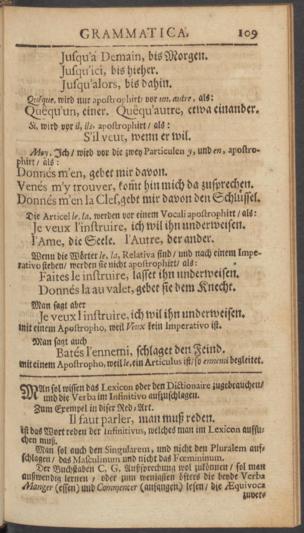 GRAMMATICA. 109
Jusqu'à Demain, bis Morgen.
Jusqu'ici, bis hieher.
Jusqu'alors, bis dahin.
Quêque, wird nur apostrophirt vor un, autre, als:
Quêqu'un, einer. Quêqu'autre, etwa einander.
Si, wird vor il, ils, apostrophirt / als:
S'il veut, wenn er wil.
Moy, Ich / wird vor die zwey Particulen y, und en, apostro-
phirt / als:
Donnés m'en, gebet mir davon.
Venés m'y trouver, kom̃t hin mich da zusprechen.
Donnés m'en la Clef, gebt mir davon den Schlüssel.
Die Articel le, la, werden vor einem Vocali apostrophirt / als:
Je veux l'instruire, ich wil ihn underweisen.
l'Ame, die Seele. l'Autre, der ander.
Wenn die Wörter le, la, Relativa sind / und nach einem Impe-
rativo stehen / werden sie nicht apostrophirt / als:
Faites le instruire, lasset ihn underweisen.
Donnés la au valet, gebet sie dem Knecht.
Man sagt aber
Je veux l'instruire, ich wil ihn underweisen.
mit einem Apostropho, weil Veux kein Imperativo ist.
Man sagt auch
Batés l'ennemi, schlaget den Feind,
mit einem Apostropho, weil le, ein Articulus ist / so ennemi begleitet.
MAn sol wissen das Lexicon oder den Dictionaire zugebrauchen /
und die Verba im Infinitivo aufzuschlagen.
Zum Exempel in diser Red-Art.
Il faut parler, man muß reden.
ist das Wort reden der Infinitivus, welches man im Lexicon auffsu-
chen muß.
Man sol auch den Singularem, und nicht den Pluralem auf-
schlagen / das Masculinum und nicht das Fœmininum.
Der Buchstaben C, G, Außsprechung wol zukönnen / sol man
außwendig lernen / oder zum wenigsten öfters die beyde Verba
Manger (essen) und Commencer (anfangen) lesen / die Æquivoca
zuvers